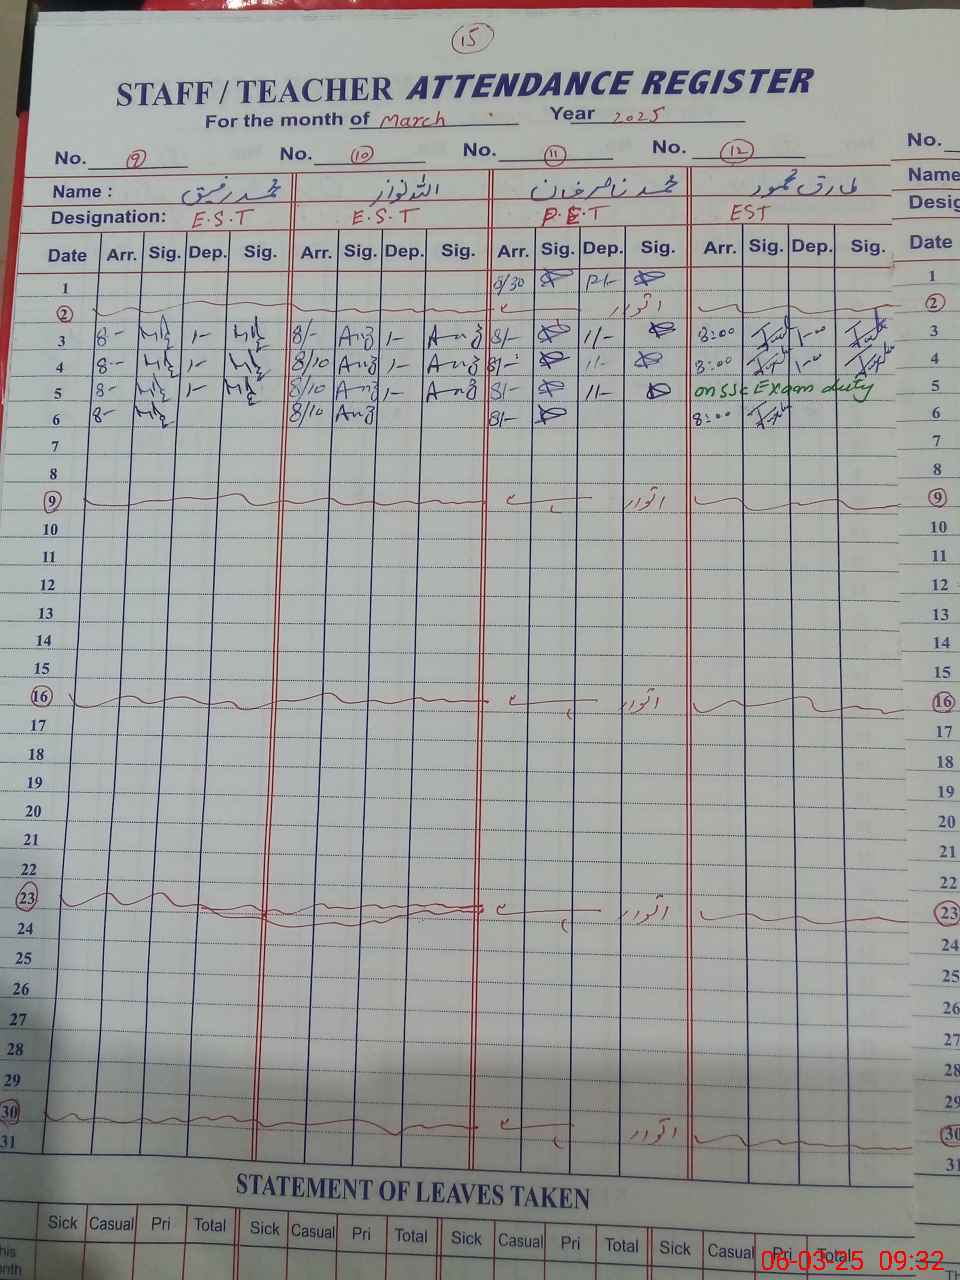 15
STAFF / TEACHER ATTENDANCE REGISTER
For the month of March Year 2025
No. 9 No. 10 No. 11 No. 12 No.
Name : محمد رفیق اللہ نواز محمد ناصر خان طارق محمود Name
Designation: E.S.T E.S.T P.E.T EST Desig
Date Arr. Sig. Dep. Sig. Arr. Sig. Dep. Sig. Arr. Sig. Dep. Sig. Arr. Sig. Dep. Sig. Date
1 8/30 12/- 1
2 اتوار 2
3 8- 1- 8/- 1- 8/- 11/- 8:00 1-00 3
4 8-- 1- 8/10 1- 8/- 11- 8:00 1-00 4
5 8- 1- 8/10 1- 8/- 11- on SSC Exam duty 5
6 8- 8/10 8/- 8:00 6
7 7
8 8
9 اتوار 9
10 10
11 11
12 12
13 13
14 14
15 15
16 اتوار 16
17 17
18 18
19 19
20 20
21 21
22 22
23 اتوار 23
24 24
25 25
26 26
27 27
28 28
29 29
30 اتوار 30
31 31
STATEMENT OF LEAVES TAKEN
Sick Casual Pri Total Sick Casual Pri Total Sick Casual Pri Total Sick Casual Pri Total
06-03-25 09:32